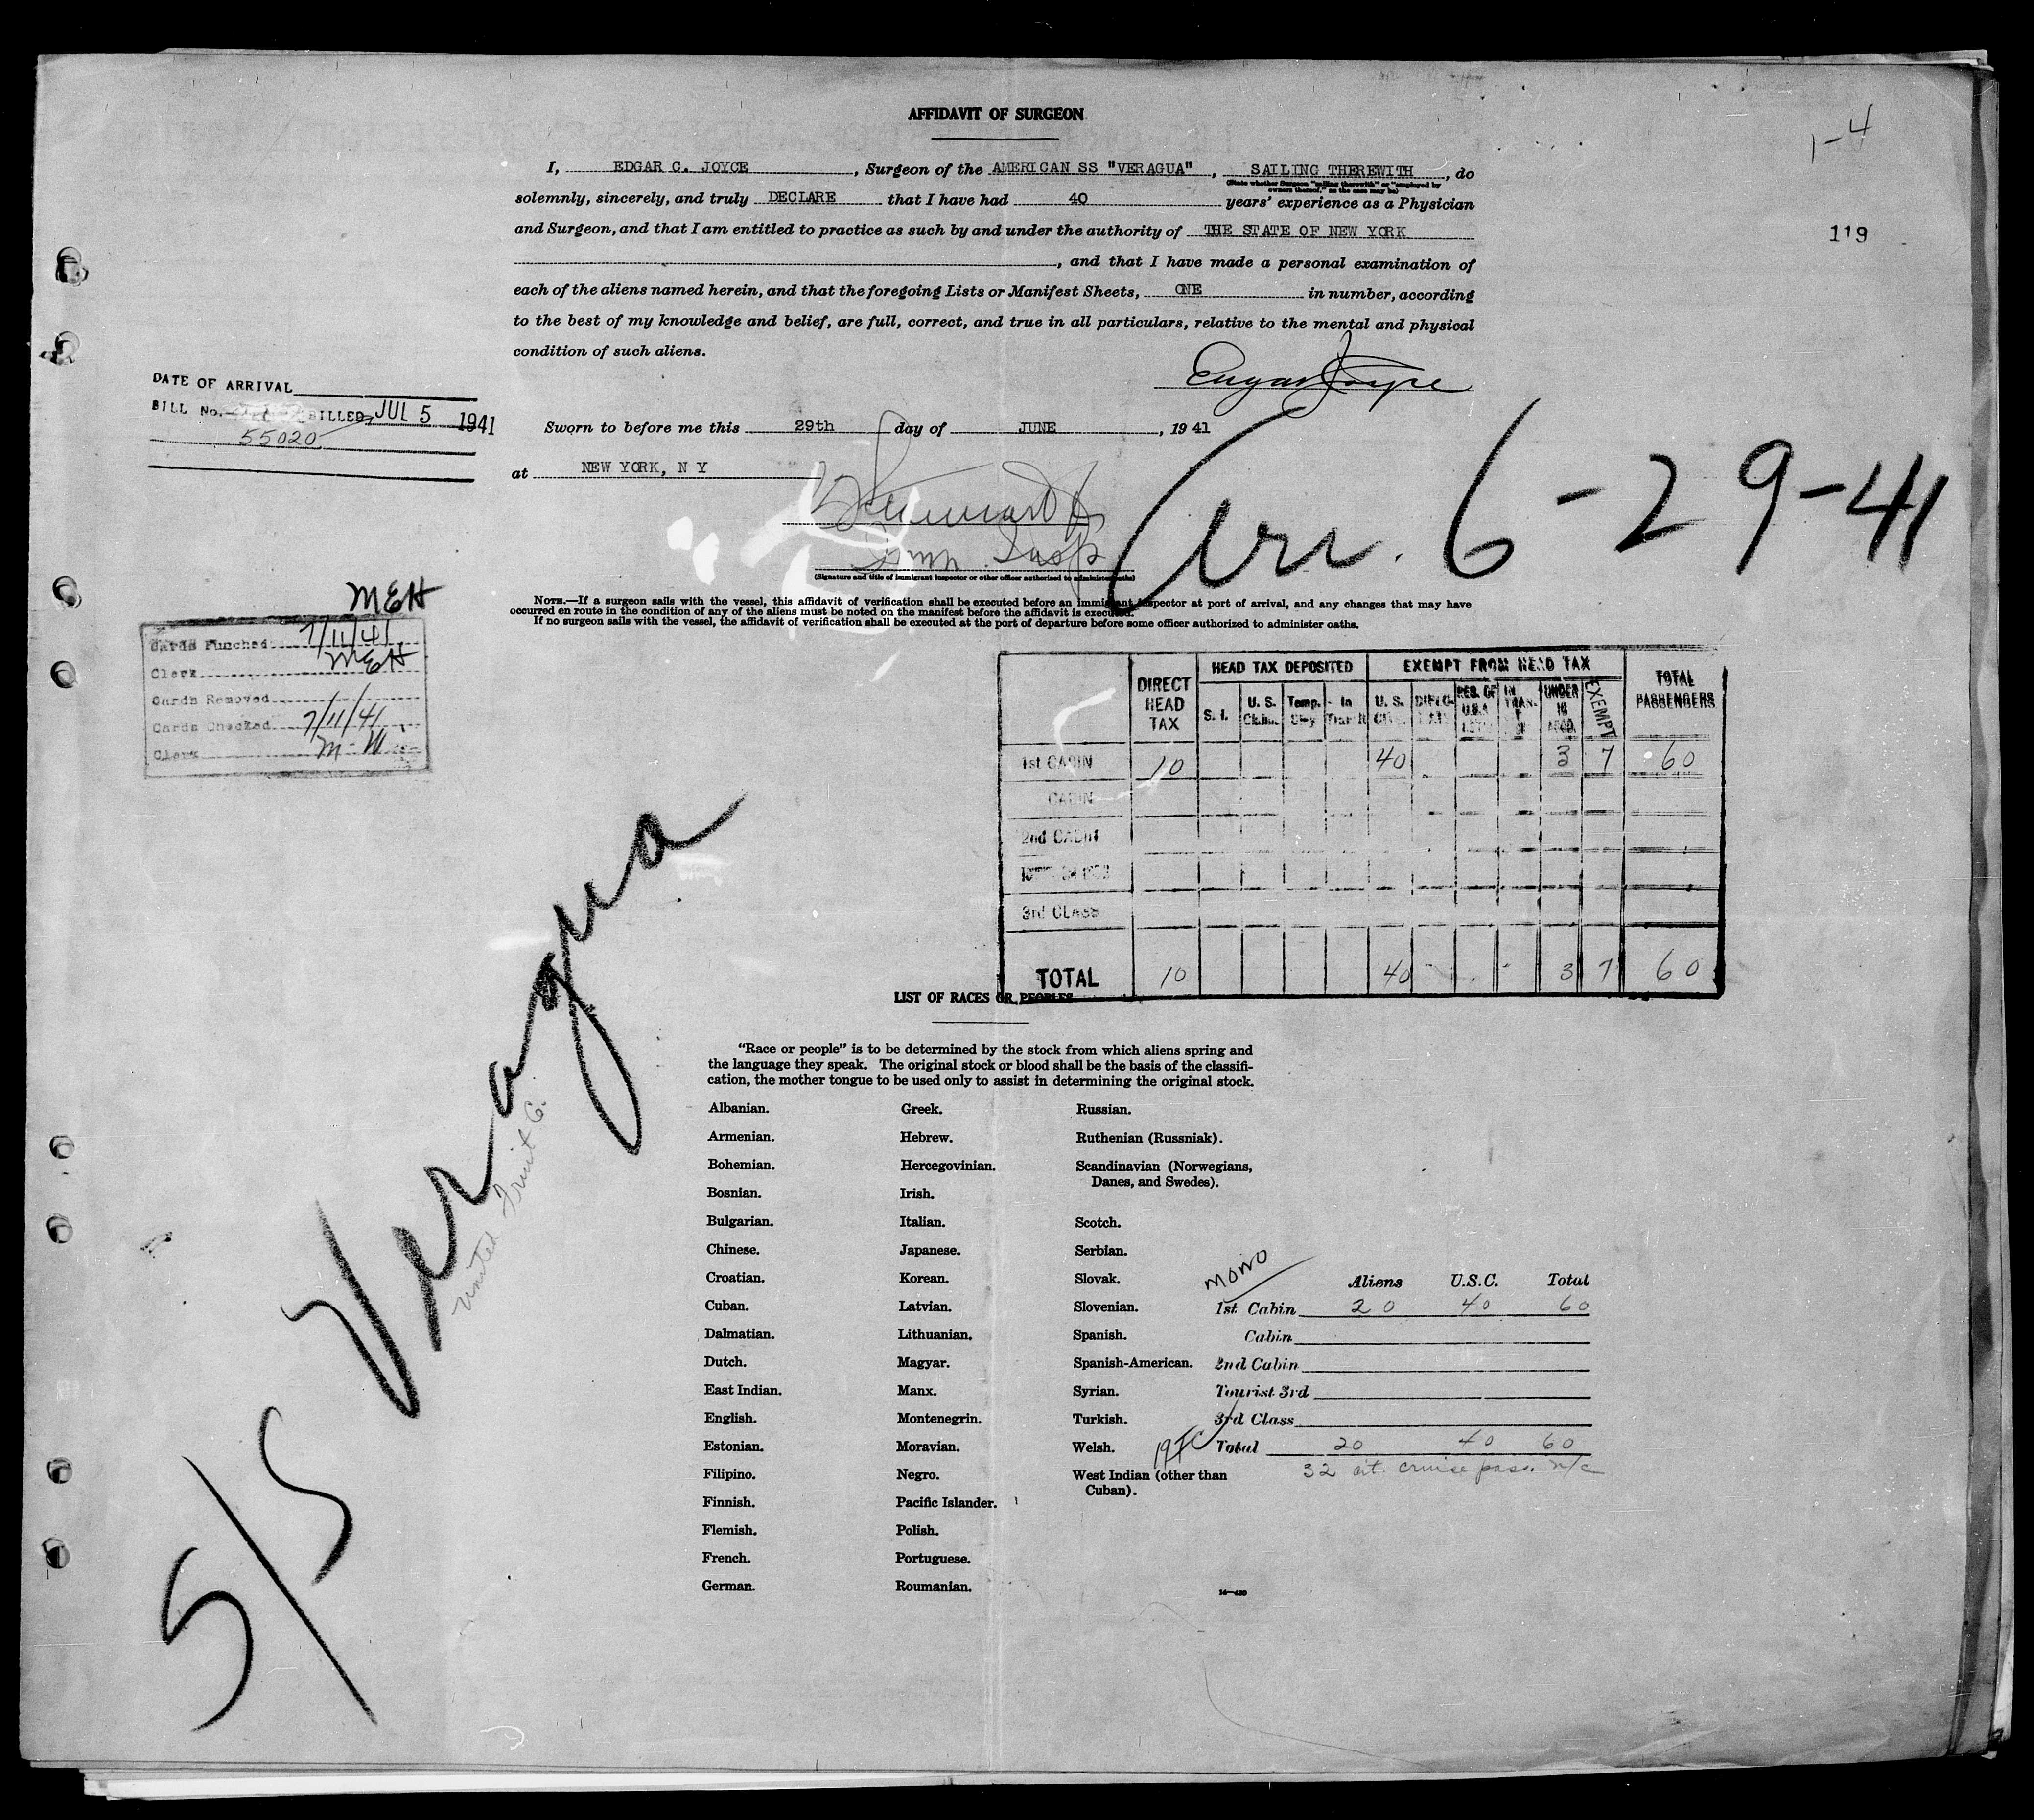 AFFIDAVIT OF SURGEON
1-4
119
I, EDGAR C. JOYCE, Surgeon of the AMERICAN SS "VERAGUA", SAILING THEREWITH, do
(State whether Surgeon "sailing therewith" or "employed by owners thereof," as the case may be)
solemnly, sincerely, and truly DECLARE that I have had 40 years' experience as a Physician
and Surgeon, and that I am entitled to practice as such by and under the authority of THE STATE OF NEW YORK
, and that I have made a personal examination of
each of the aliens named herein, and that the foregoing Lists or Manifest Sheets, ONE in number, according
to the best of my knowledge and belief, are full, correct, and true in all particulars, relative to the mental and physical
condition of such aliens.
Edgar Joyce
DATE OF ARRIVAL
BILL No. BILLED JUL 5 1941
55020
Sworn to before me this 29th day of JUNE, 1941
at NEW YORK, N Y
Imm. Insp
(Signature and title of immigrant inspector or other officer authorized to administer oaths)
Arr. 6-29-41
NOTE.—If a surgeon sails with the vessel, this affidavit of verification shall be executed before an immigrant inspector at port of arrival, and any changes that may have
occurred en route in the condition of any of the aliens must be noted on the manifest before the affidavit is executed.
If no surgeon sails with the vessel, the affidavit of verification shall be executed at the port of departure before some officer authorized to administer oaths.
MEH
Cards Punched 7/11/41
Clerk MEH
Cards Removed
Cards Checked 7/11/41
Clerk
DIRECT HEAD TAX
HEAD TAX DEPOSITED
EXEMPT FROM HEAD TAX
TOTAL PASSENGERS
S. I.
U. S. Claim.
Temp. Stay
In Transit
U. S. Citz.
DIPLO-
RES. OF U.S.A.
IN TRAN.
UNDER 16
EXEMPT
1st CABIN 10 40 3 7 60
CABIN
2nd CABIN
3rd CLASS
TOTAL 10 40 3 7 60
S/S Veragua
United Fruit Co.
LIST OF RACES OR PEOPLES
"Race or people" is to be determined by the stock from which aliens spring and
the language they speak. The original stock or blood shall be the basis of the classifi-
cation, the mother tongue to be used only to assist in determining the original stock.
Albanian.
Armenian.
Bohemian.
Bosnian.
Bulgarian.
Chinese.
Croatian.
Cuban.
Dalmatian.
Dutch.
East Indian.
English.
Estonian.
Filipino.
Finnish.
Flemish.
French.
German.
Greek.
Hebrew.
Hercegovinian.
Irish.
Italian.
Japanese.
Korean.
Latvian.
Lithuanian.
Magyar.
Manx.
Montenegrin.
Moravian.
Negro.
Pacific Islander.
Polish.
Portuguese.
Roumanian.
Russian.
Ruthenian (Russniak).
Scandinavian (Norwegians,
Danes, and Swedes).
Scotch.
Serbian.
Slovak.
Slovenian.
Spanish.
Spanish-American.
Syrian.
Turkish.
Welsh.
West Indian (other than
Cuban).
Aliens U.S.C. Total
1st Cabin 20 40 60
Cabin
2nd Cabin
Tourist 3rd
3rd Class
Total 20 40 60
32 cit. cruise pass. n/c